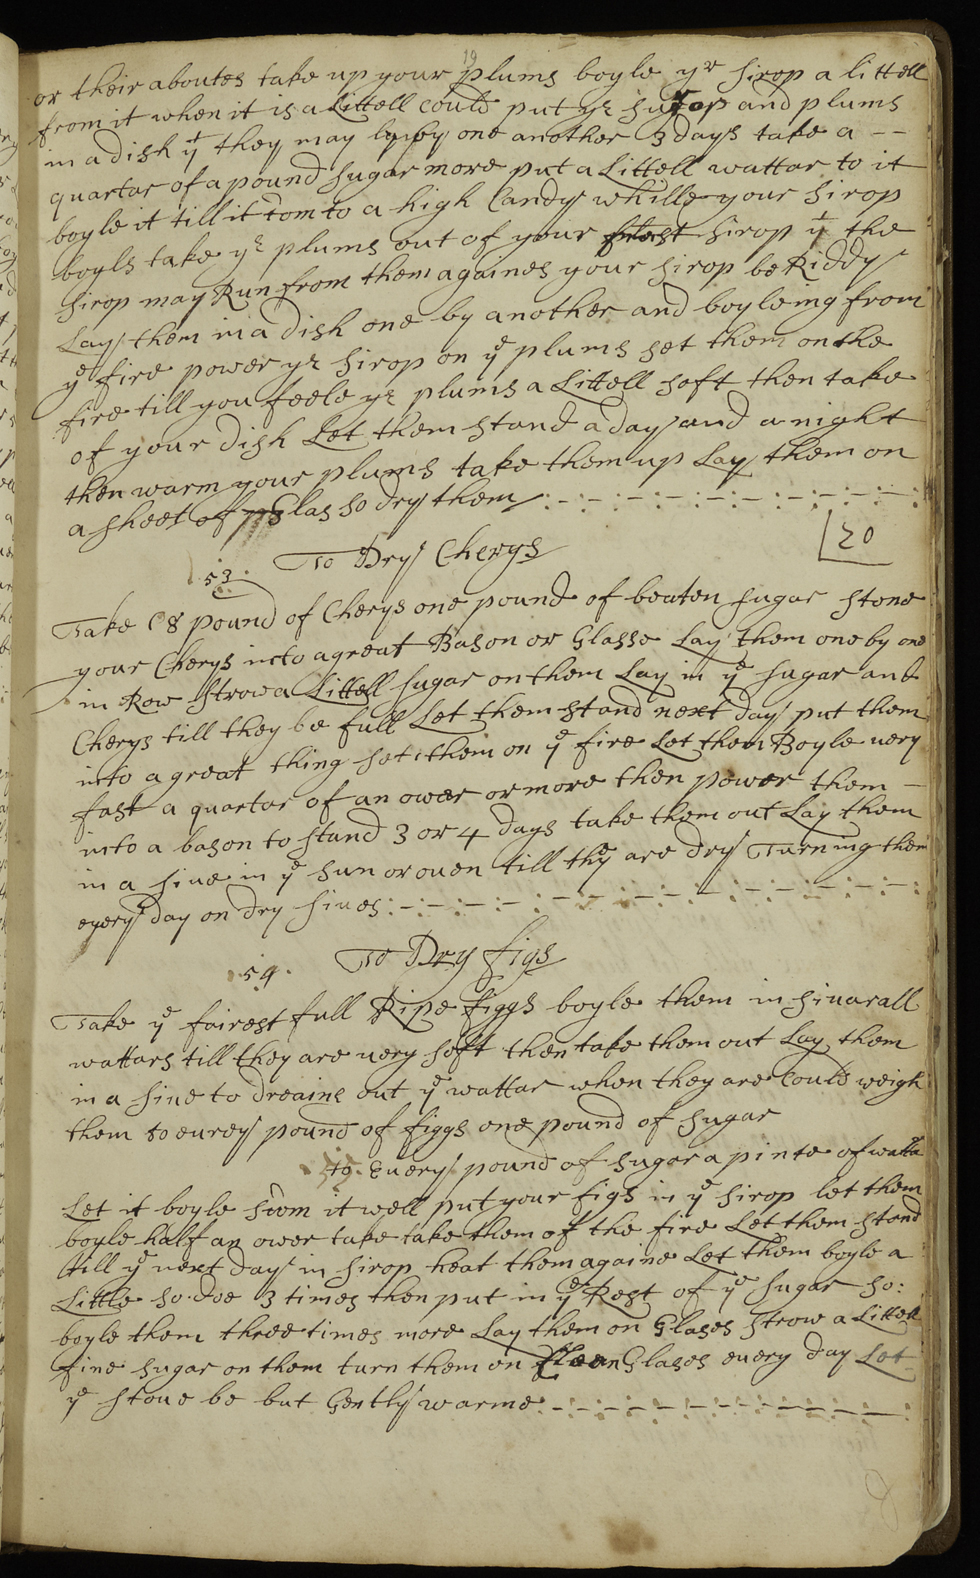 19
or their aboutes take up your plums boyle yr sirop a littell
from it when it is a Littell could put yr sirop and plums
in a dish yt they may ly by one another 3 days take a --
quartar of a pound sugar more put a Littell wattar to it
boyle it till it Com to a high Candy whille your sirop
boyls take yr plums out of your first sirop yt the
sirop may Run from them againes your sirop be Riddy
Lay them in a dish one by another and boyleing from
ye fire power yr sirop on ye plums set them on the
fire till you feele yr plums a Littell soft then take
of your dish Let them stand a day and a night
then warm your plums take them up Lay them on
a sheet of Glas so dry them
20
53. To Dry Cherys
Take 8 pound of Cherys one pound of beaten sugar stone
your Cherys into a great Bason or Glasse Lay them one by one
in Row strow a Littell sugar on them Lay in ye sugar and
Cherys till they be full Let them stand next day put them
into a great thing set them on ye fire Let them Boyle uery
fast a quartar of an ower or more then power them -
into a bason to stand 3 or 4 days take them out Lay them
in a siue in ye sun or ouen till thy are dry Turning them
euery day on dry siues
54. To Dry figs
Take ye fairest full Ripe figgs boyle them in siuarall
wattars till they are uery soft then take them out Lay them
in a siue to dreaine out ye wattar when they are Could weigh
them to eurey pound of figgs one pound of sugar
to Euery pound of sugar a pinte of watta
Let it boyle scom it well put your figs in ye sirop let them
boyle half an ower take take them of the fire Let them stand
till ye next day in sirop heat them againe Let them boyle a
Little so doe 3 times then put in ye Rest of ye sugar so:
boyle them three times more Lay them on Glases strow a Littell
fine sugar on them turn them on Clean Glases euery day Let
ye stoue be but Gently warme